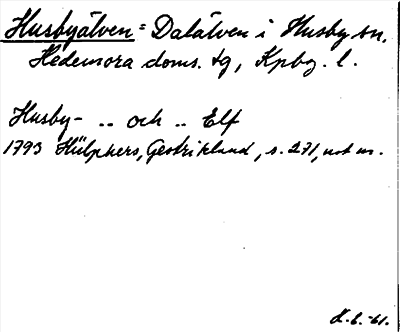 Husbyälven = Dalälven i Husby sn.
Hedemora doms. tg, Kpbg. l.
Husby- .. och .. Elf
1793 Hülphers, Gestrikland, s. 271, not m.
K.L. -61.